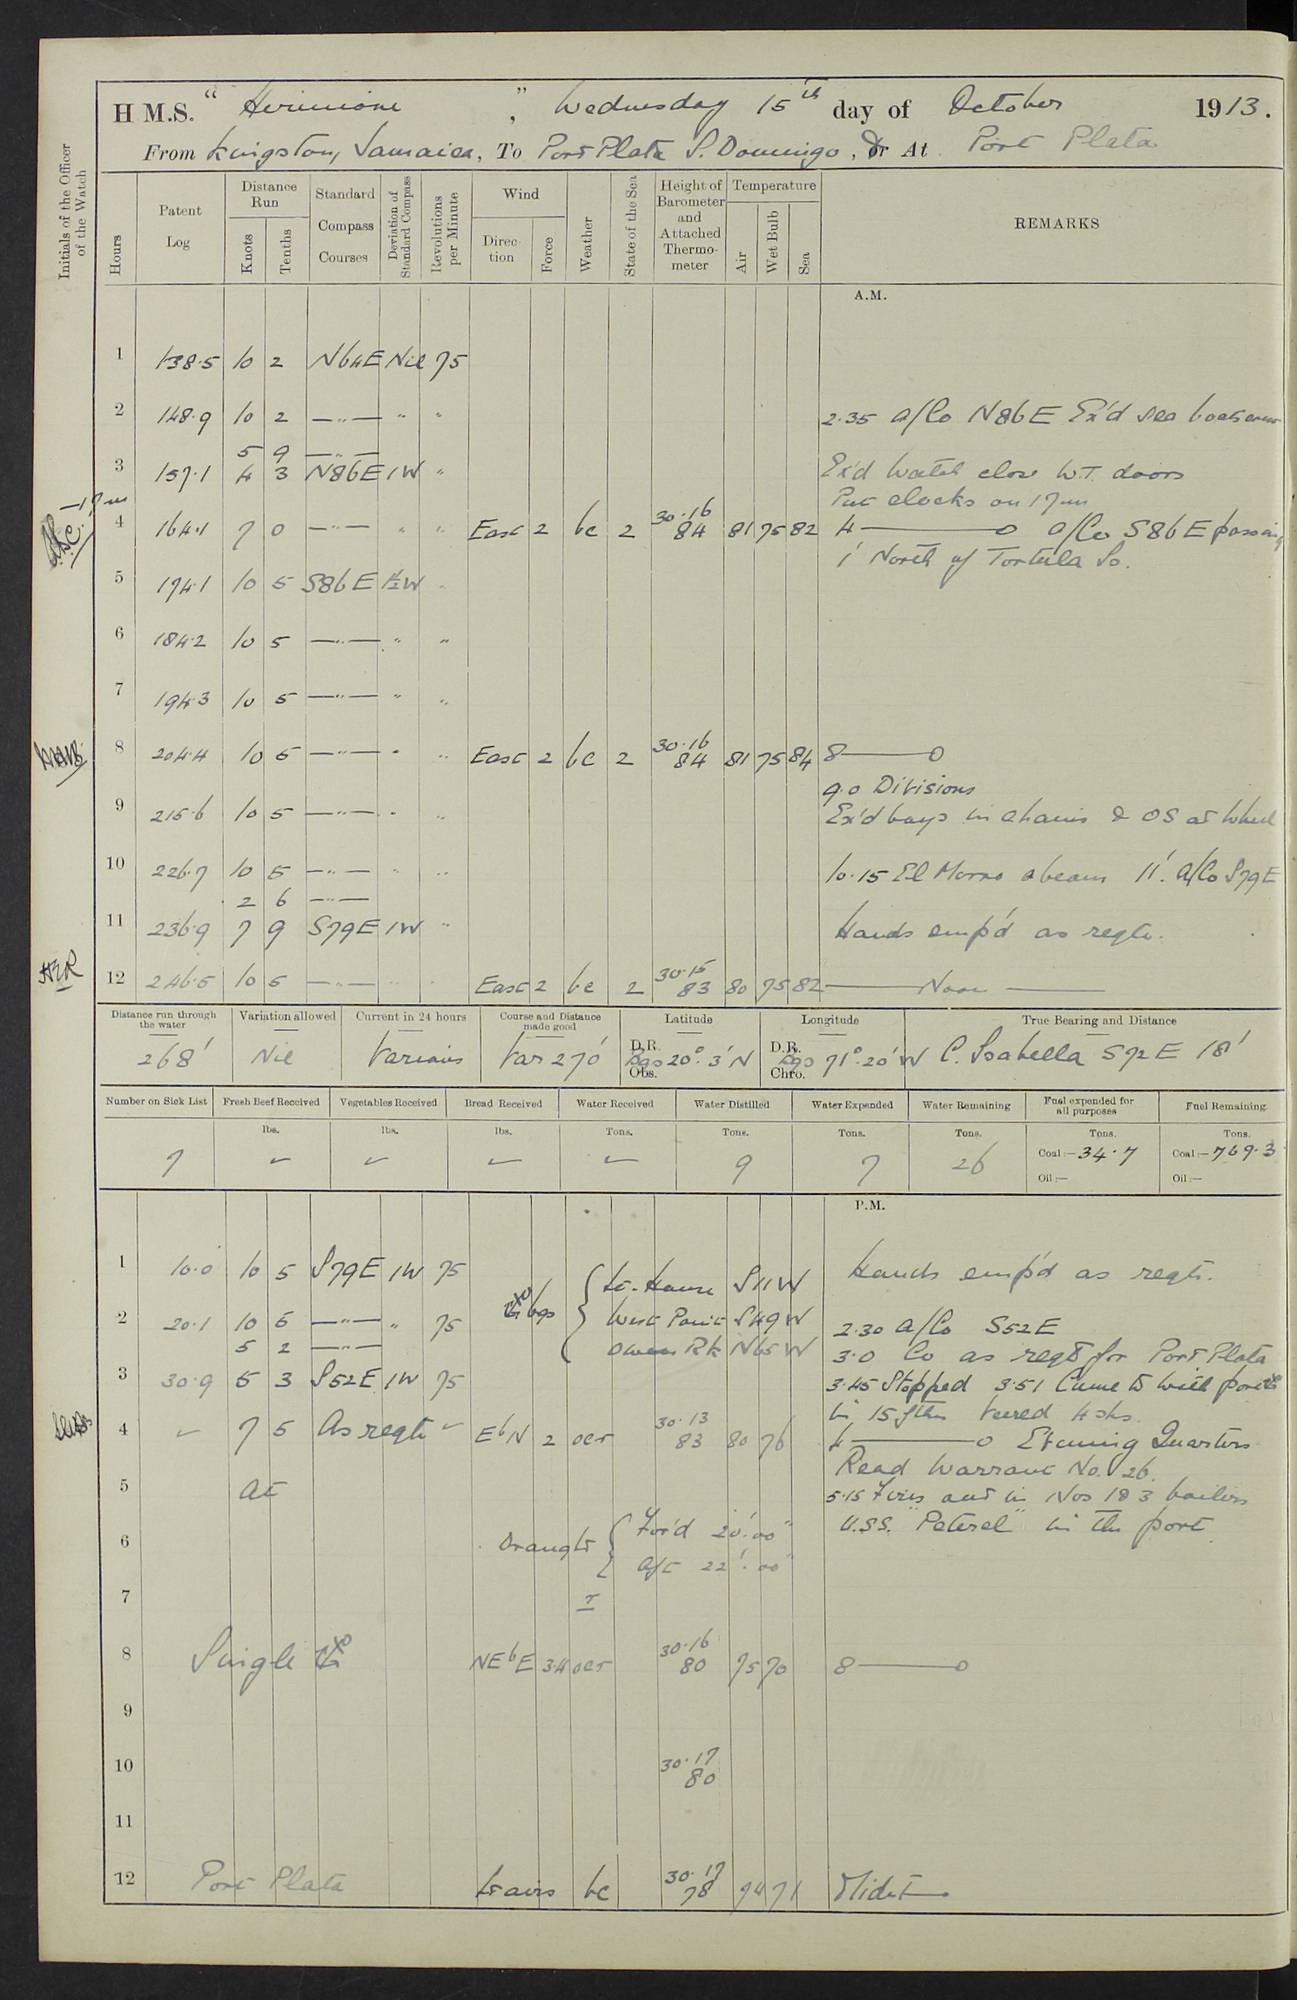 H M.S. " Hermione ", Wednesday 15th day of October 1913.
From Kingston, Jamaica, To Port Plata S. Domingo, Or At Port Plata
Initials of the Officer of the Watch
Hours
Patent Log
Distance Run
Knots
Tenths
Standard Compass Courses
Deviation of Standard Compass
Revolutions per Minute
Wind
Direction
Force
Weather
State of the Sea
Height of Barometer and Attached Thermometer
Temperature
Air
Wet Bulb
Sea
REMARKS
A.M.
1 138.5 10 2 N64E Nil 75
2 148.9 10 2 —"— " " 2.35 a/Co N86E Ex'd sea boats crew
5 9 —"—
3 157.1 4 3 N86E 1W " Ex'd Watch close W.T. doors
—17m Put clocks on 17m
4 164.1 7 0 —"— " " East 2 bc 2 30.16 84 81 75 82 4 —— 0 a/Co S86E passing
1' North of Tortula Is.
5 174.1 10 5 S86E 1½W "
6 184.2 10 5 —"— " "
7 194.3 10 5 —"— " "
8 204.4 10 5 —"— " " East 2 bc 2 30.16 84 81 75 84 8 —— 0
9.0 Divisions
9 215.6 10 5 —"— " " Ex'd boys in chains & OS at Wheel
10 226.7 10 5 —"— " " 10.15 El Morro abeam 11'. A/Co S79E
2 6 —"—
11 236.9 7 9 S79E 1W " Hands emp'd as reqte.
HER 12 246.5 10 5 —"— " " East 2 bc 2 30.15 83 80 75 82 —— Noon ——
Distance run through the water
Variation allowed
Current in 24 hours
Course and Distance made good
Latitude
Longitude
True Bearing and Distance
268' Nil Various Var 270' D.R. Bgs Obs. 20°.3'N D.R. Bgs Chro. 71°.20'W C. Isabella S72E 18'
Number on Sick List
Fresh Beef Received
Vegetables Received
Bread Received
Water Received
Water Distilled
Water Expended
Water Remaining
Fuel expended for all purposes
Fuel Remaining.
lbs. lbs. lbs. Tons. Tons. Tons. Tons. Tons. Tons.
7 ✓ ✓ ✓ ✓ 9 7 26 Coal:— 34.7 Coal:— 769.3
Oil:— Oil:—
P.M.
1 10.0 10 5 S79E 1W 75 Lt. House S11W Hands emp'd as reqte.
2 20.1 10 5 —"— " 75 bgs West Point S49W 2.30 A/Co S52E
5 2 —"— Owen Rk N65W 3.0 Co as reqte for Port Plata
3 30.9 5 3 S52E 1W 75 3.45 Stopped 3.51 Came to with port
in 15 fths veered 4 shs.
4 ✓ 7 5 As reqte ✓ EbN 2 ocr 30.13 83 80 76 4 —— 0 Evening Quarters
Read Warrant No. 26.
5 At 5.15 Fires out in Nos 1 & 3 boilers
U.S.S. "Petrel" in the port
6 Draught For'd 20'.00"
Aft 22'.00"
7
8 Single NEbE 3.4 ocr 30.16 80 75 70 8 —— 0
9
10 30.17 80
11
12 Port Plata Lt airs bc 30.17 78 74 71 Midt ——